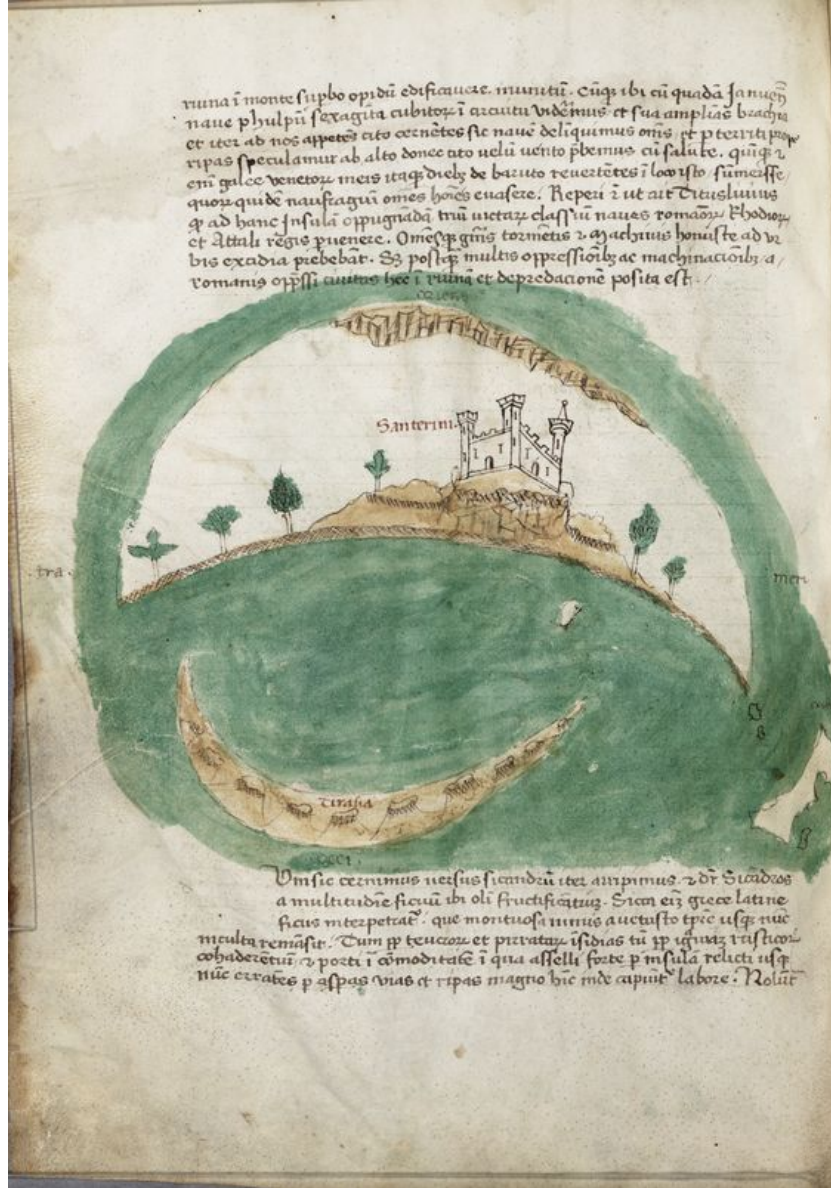 ruina ī monte supbo opidū edificauere munitū. Cūqꝫ ibi cū quadā Januēn
naue p hulpū sexagīta cubitoꝝ ī circuitu vidēmus et sua amplias brachia
et iter ad nos appetēs cito cernētes sic nauē deliquimus om̄s et p territi prope
ripas speculamur ab alto donec cito velū vento p̄bemus cū salute. quīqꝫ
em̄ galee venetoꝝ meis itaqꝫ diebꝫ de baruto reuertētes ī loco isto sūmersse
quoꝝ quidē naufragiū omēs hoīes euasere. Reperi ut ait Tituslivius
qꝫ ad hanc Insulā oppugnādā triū victaꝝ classiū naues romāoꝝ Rhodioꝝ
et Attali regis puenere. Omēsqꝫ gn̄is tormētis ⁊ machinis honuste ad vr
bis excidia prebebāt. Sꝫ postqꝫ multis oppressiōibꝫ ac machinaciōibꝫ a
romanis opp̄ssi ciuitas hec ī ruinā et depredacionē posita est.
oriens
Santerini.
tra.
meri
Tirasia
occi
Vm sic cernimus uersus sicandrū iter arripimus. ⁊ dr̄ Sicādros
a multitudīe ficuū ibi olī fructificātiuꝫ. Sica eīꝫ grece latine
ficus interpetrat᷑. que montuosa nimis a uetusto tp̄re usqꝫ nūc
inculta remāsit. Tum pp teucroꝝ et pirrataꝝ īsidias tū pp rusticoꝝ
cohaderentiū ⁊ porti ī cōmoditatē ī qua asselli forte p insulā relicti usqꝫ
nūc errātes p asp̄as vias et ripas magno hīc inde capiūt᷑ labore. Nolūt